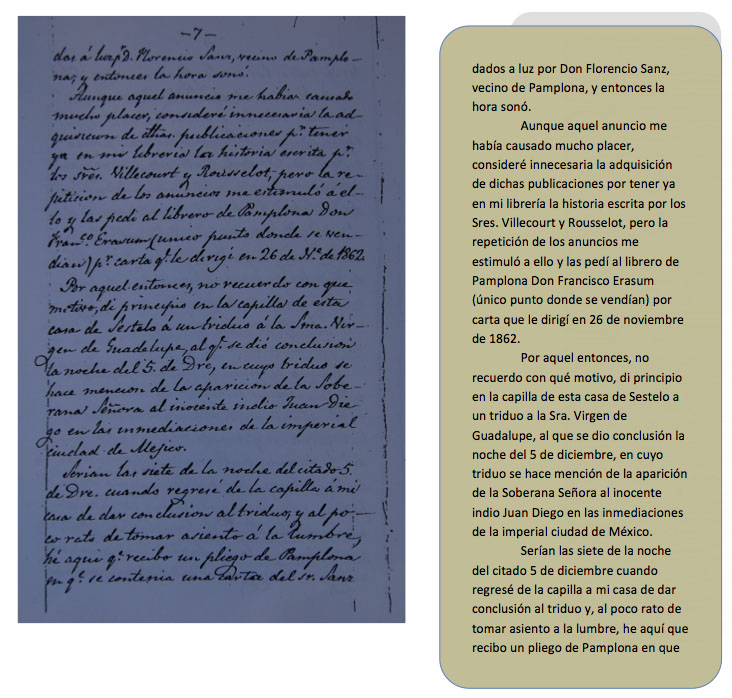 —7—
dos á luz p.r D. Florencio Sanz, vecino de Pamplo-
na; y entonces la hora sonó.
Aunque aquel anuncio me habia causado
mucho placer, consideré innecesaria la ad-
quisicion de dthas. publicaciones p.r tener
ya en mi libreria la historia escrita p.r
los sres. Villecourt y Rousselot, pero la re-
peticion de los anuncios me estimuló á el-
lo y las pedí al librero de Pamplona Don
Fran.co Erasum (unico punto donde se ven-
dian) p.r carta q.e le dirigí en 26 de N.e de 1862.
Por aquel entonces, no recuerdo con que
motivo, di principio en la capilla de esta
casa de Sestelo á un triduo á la Sma. Vir-
gen de Guadalupe, al q.e se dió conclusion
la noche del 5. de Dre, en cuyo triduo se
hace mencion de la aparicion de la Sobe-
rana Señora al inocente indio Juan Die-
go en las inmediaciones de la imperial
ciudad de Mejico.
Serian las siete de la noche del citado 5
de Dre. cuando regresé de la capilla á mi
casa de dar conclusion al triduo, y al po-
co rato de tomar asiento á la lumbre,
hé aqui q.e recibo un pliego de Pamplona
en q.e se contenia una carta del sr. Sanz
dados a luz por Don Florencio Sanz,
vecino de Pamplona, y entonces la
hora sonó.
Aunque aquel anuncio me
había causado mucho placer,
consideré innecesaria la adquisición
de dichas publicaciones por tener ya
en mi librería la historia escrita por los
Sres. Villecourt y Rousselot, pero la
repetición de los anuncios me
estimuló a ello y las pedí al librero de
Pamplona Don Francisco Erasum
(único punto donde se vendían) por
carta que le dirigí en 26 de noviembre
de 1862.
Por aquel entonces, no
recuerdo con qué motivo, di principio
en la capilla de esta casa de Sestelo a
un triduo a la Sra. Virgen de
Guadalupe, al que se dio conclusión la
noche del 5 de diciembre, en cuyo
triduo se hace mención de la aparición
de la Soberana Señora al inocente
indio Juan Diego en las inmediaciones
de la imperial ciudad de México.
Serían las siete de la noche
del citado 5 de diciembre cuando
regresé de la capilla a mi casa de dar
conclusión al triduo y, al poco rato de
tomar asiento a la lumbre, he aquí que
recibo un pliego de Pamplona en que